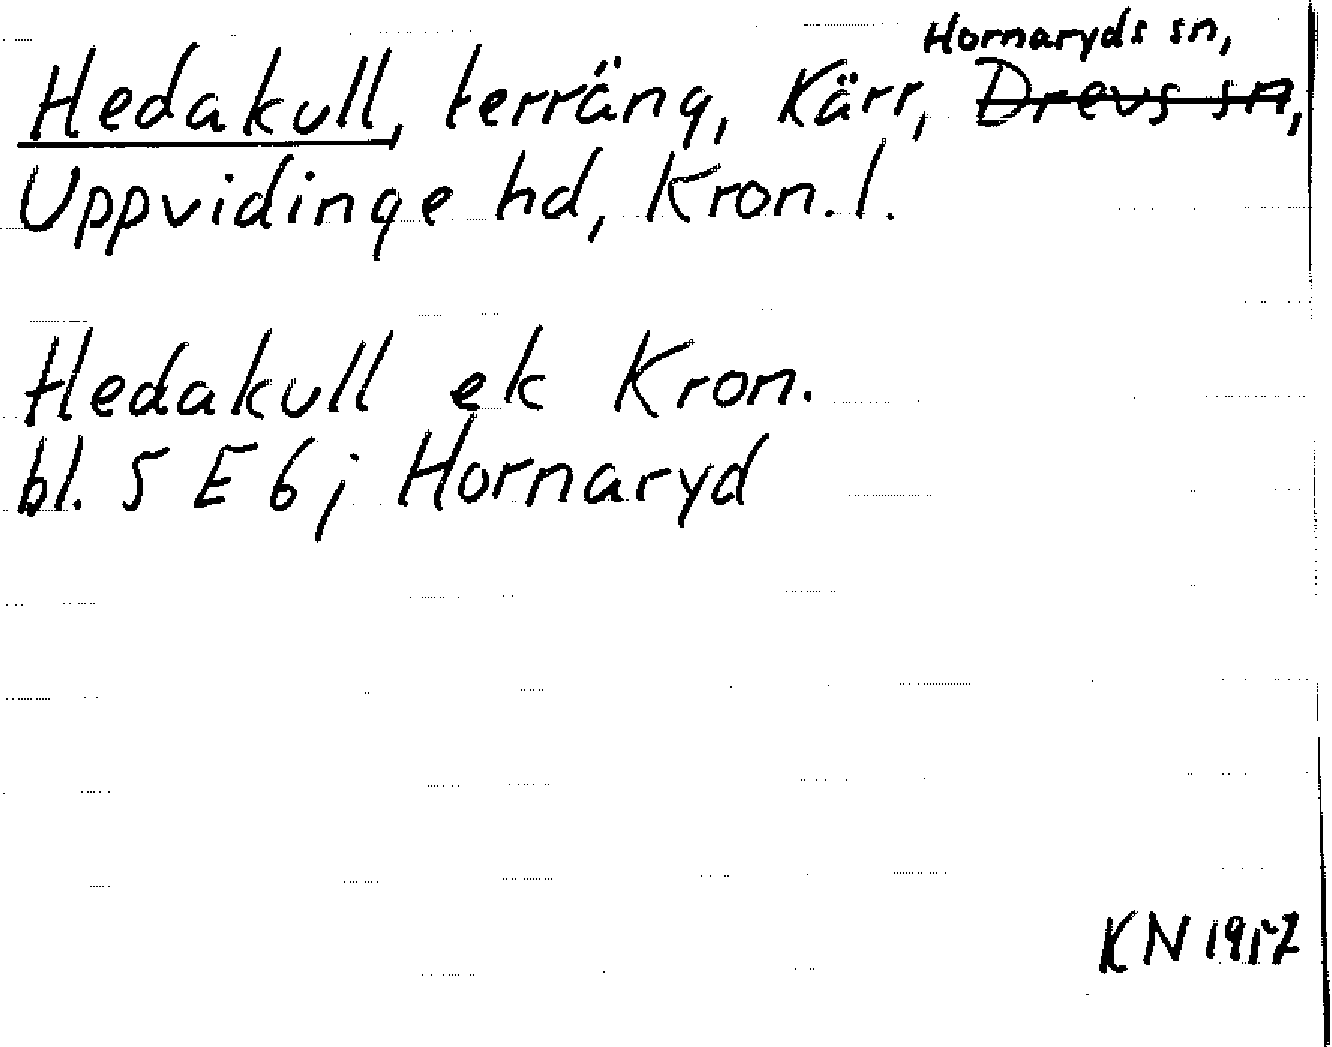 Hornaryds sn,
Hedakull, terräng, Kärr, Drevs sn,
Uppvidinge hd, Kron. l.
Hedakull ek Kron.
bl. 5 E 6 j Hornaryd
KN 1957